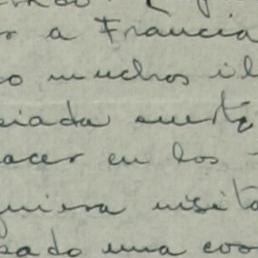 r a Francia
o muchos il
siada suerte
acer en los
quiera visita
pado una coo